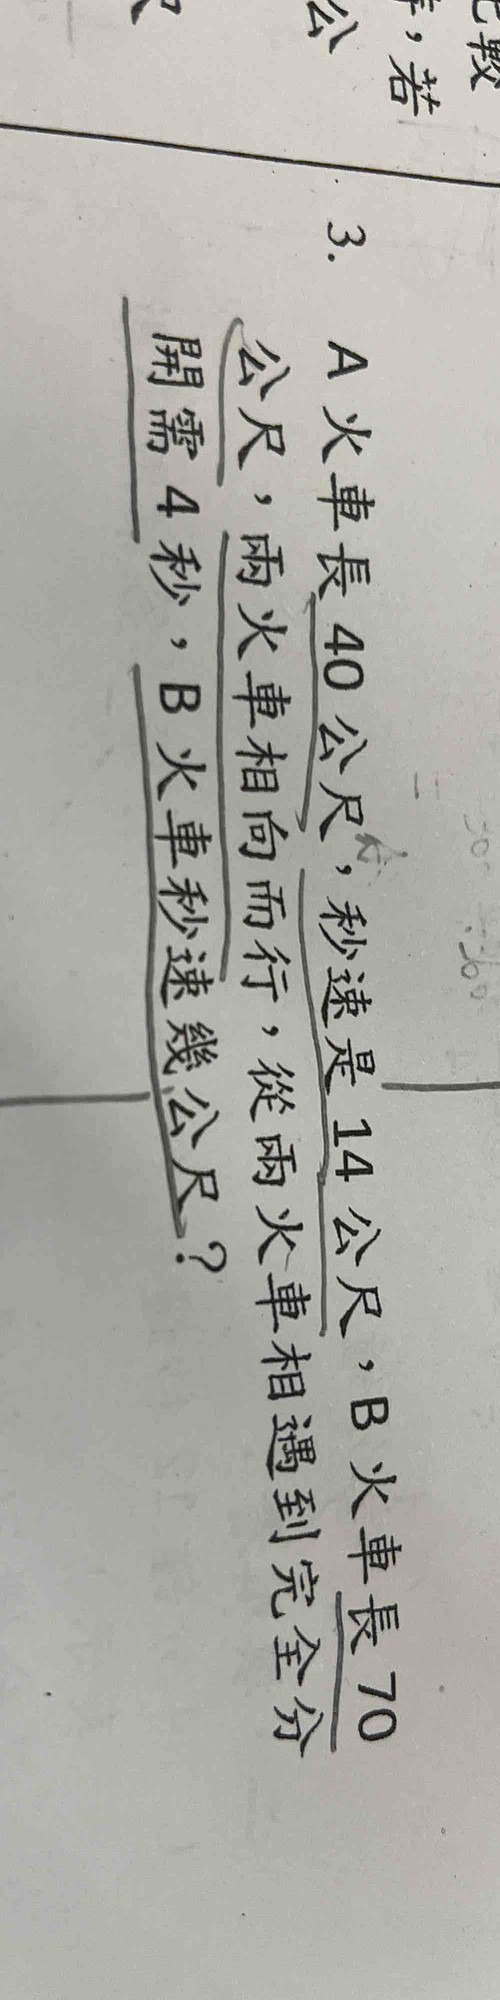 3. A 火車長 40 公尺，秒速是 14 公尺，B 火車長 70
公尺，兩火車相向而行，從兩火車相遇到完全分
開需 4 秒，B 火車秒速幾公尺？
，若
公